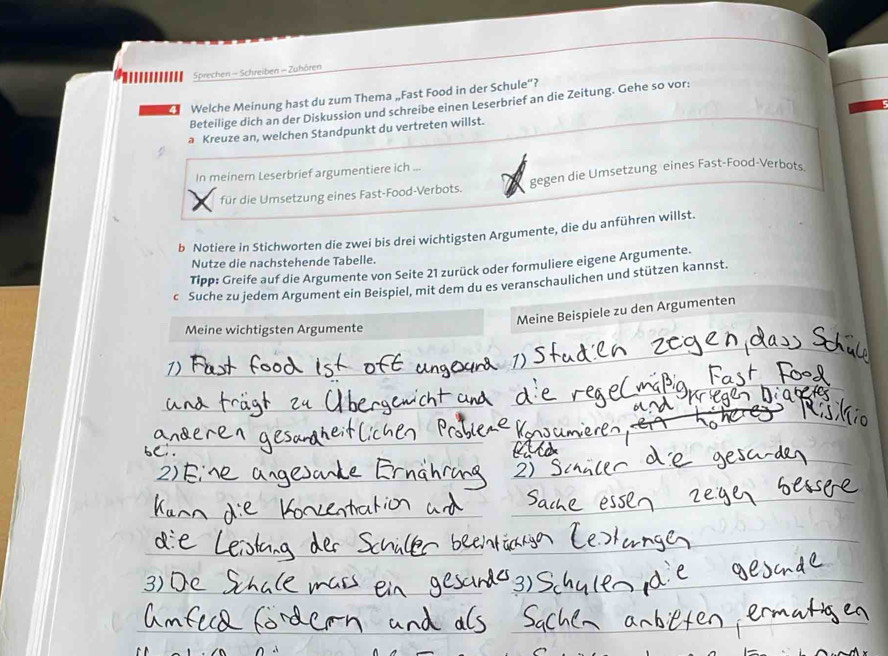 Sprechen – Schreiben – Zuhören
4 Welche Meinung hast du zum Thema „Fast Food in der Schule“?
Beteilige dich an der Diskussion und schreibe einen Leserbrief an die Zeitung. Gehe so vor:
a Kreuze an, welchen Standpunkt du vertreten willst.
In meinem Leserbrief argumentiere ich ...
für die Umsetzung eines Fast-Food-Verbots.
gegen die Umsetzung eines Fast-Food-Verbots.
b Notiere in Stichworten die zwei bis drei wichtigsten Argumente, die du anführen willst.
Nutze die nachstehende Tabelle.
Tipp: Greife auf die Argumente von Seite 21 zurück oder formuliere eigene Argumente.
c Suche zu jedem Argument ein Beispiel, mit dem du es veranschaulichen und stützen kannst.
Meine wichtigsten Argumente
1) Fast food ist oft ungesund
und trägt zu Übergewicht und
anderen gesundheitlichen Probleme
bei.
2) Eine ungesunde Ernährung
kann die Konzentration und
die Leistung der Schüler beeinträchtigen
3) Die Schule muss ein gesundes
Umfeld fördern und als
Meine Beispiele zu den Argumenten
1) Studien zegen, dass Schüle
die regelmäßig Fast Food
Konsumieren, und kriegen Diabetes
höheres Risikio
2) Schüler die gesunden
Sache essen zeigen bessere
Leistungen
3) Schulen, die gesunde
Sachen anbieten, ermutigen